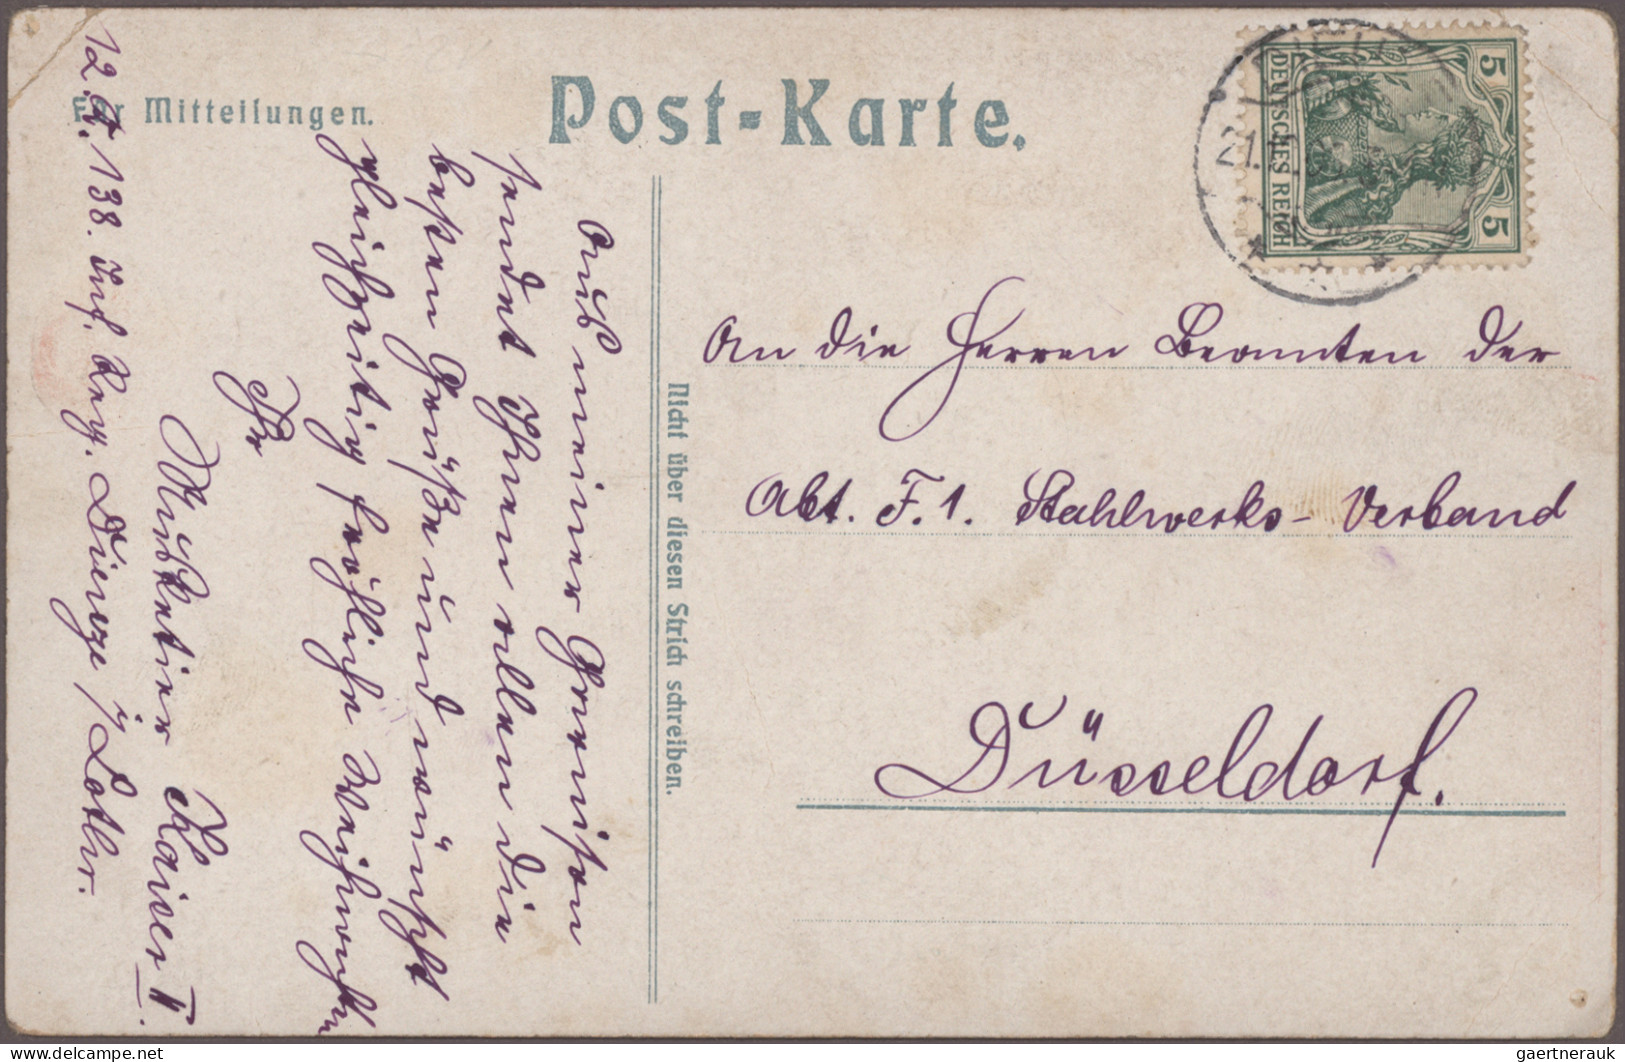 Post-Karte.
Für Mitteilungen.
DEUTSCHES REICH
5
5
21.
Nicht über diesen Strich schreiben.
An die Herren Beamten der
Abt. F. 1. Stahlwerks-Verband
Düsseldorf.
Aus meiner Garnison
sendet Ihnen allen die
besten Grüße und wünscht
gleichzeitig fröhliche Weihnachten
Ihr
Musketier Kaiser II.
12. 138. Inf. Reg. Dieuze i/Lothr.
www.delcampe.net
gaertnerauk